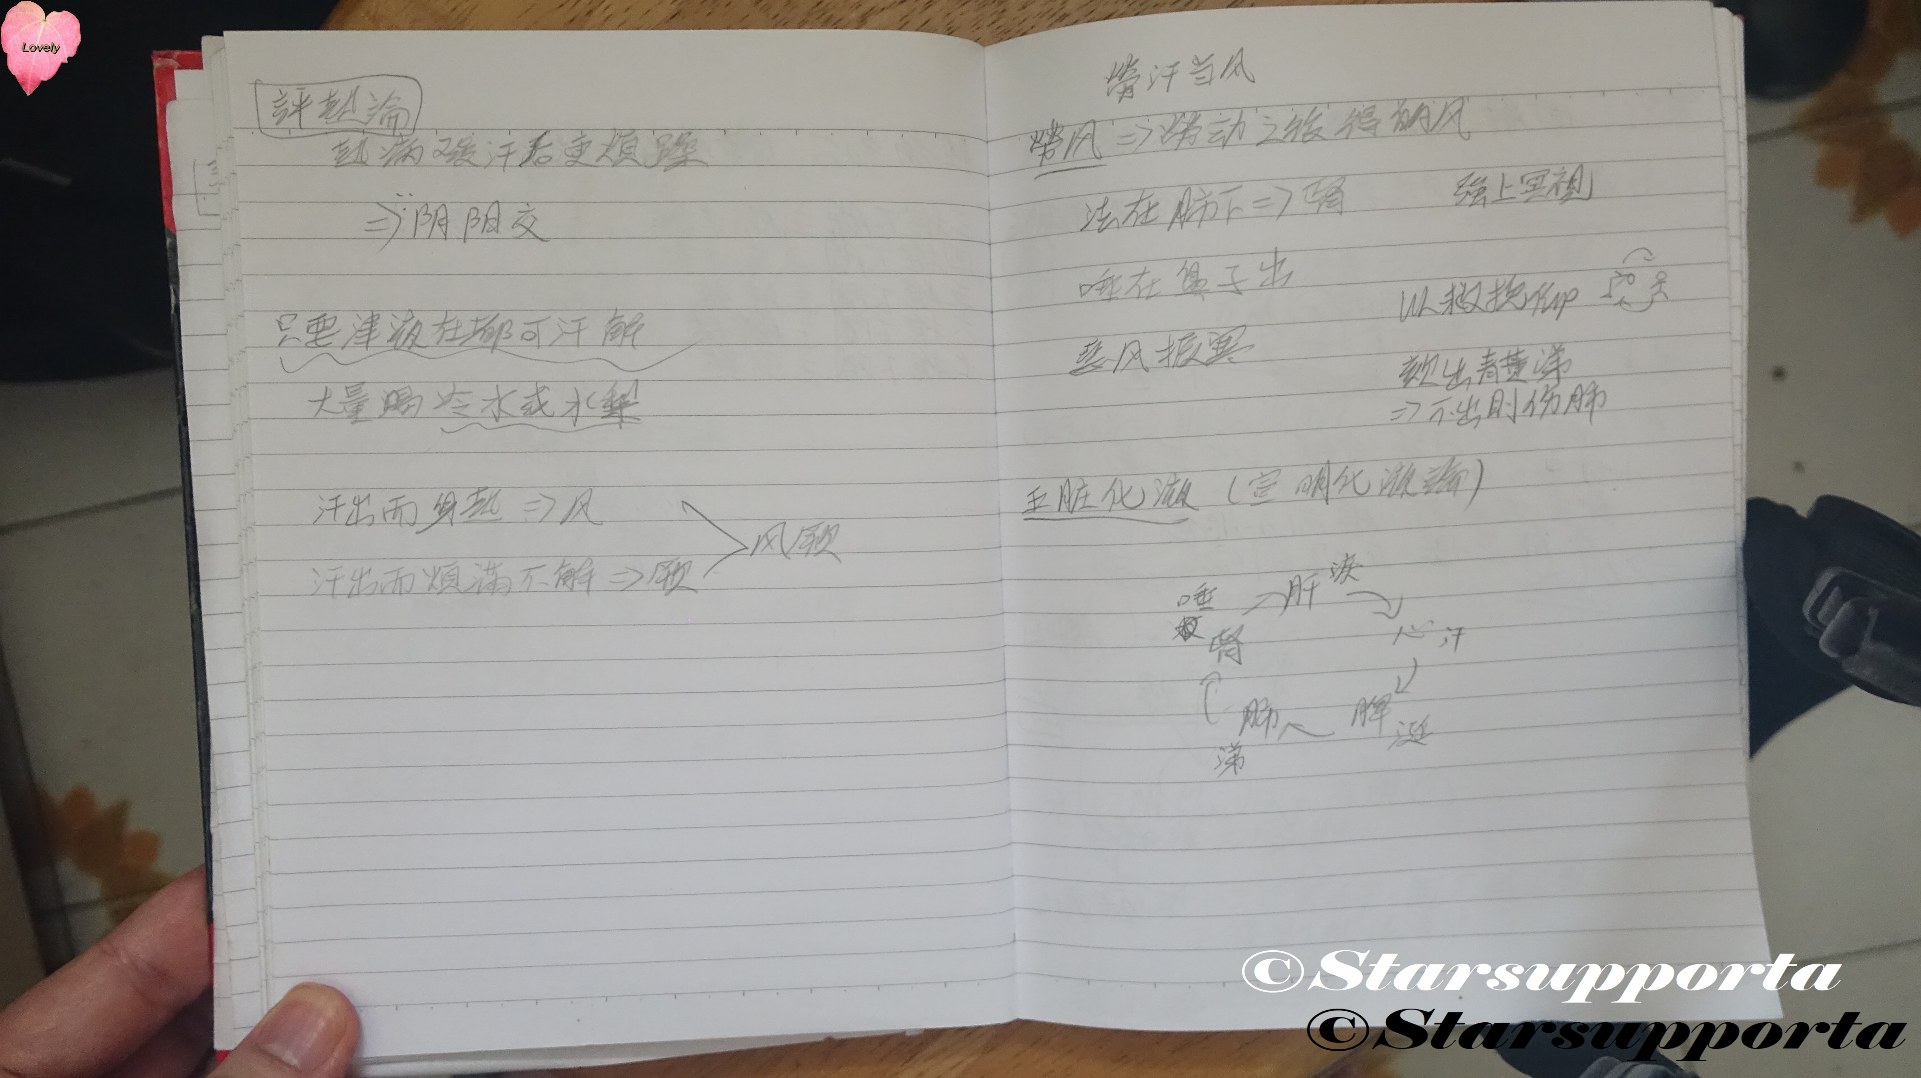 Lovely
評热論
热病發汗后更煩躁
⇒阴阳交
只要津液在都可汗解
大量喝冷水或水梨
汗出而身热⇒风
汗出而煩滿不解⇒厥
风厥
劳汗当风
劳风⇒劳动之後得的风
法在肺下⇒腎
强上冥視
唾在鼻子出
以救俛仰
恶风振寒
欬出青黄涕
⇒不出則伤肺
五脏化液(宣明化液論)
唾 腎
肝 淚
心 汗
脾 涎
肺 涕
©Starsupporta
©Starsupporta